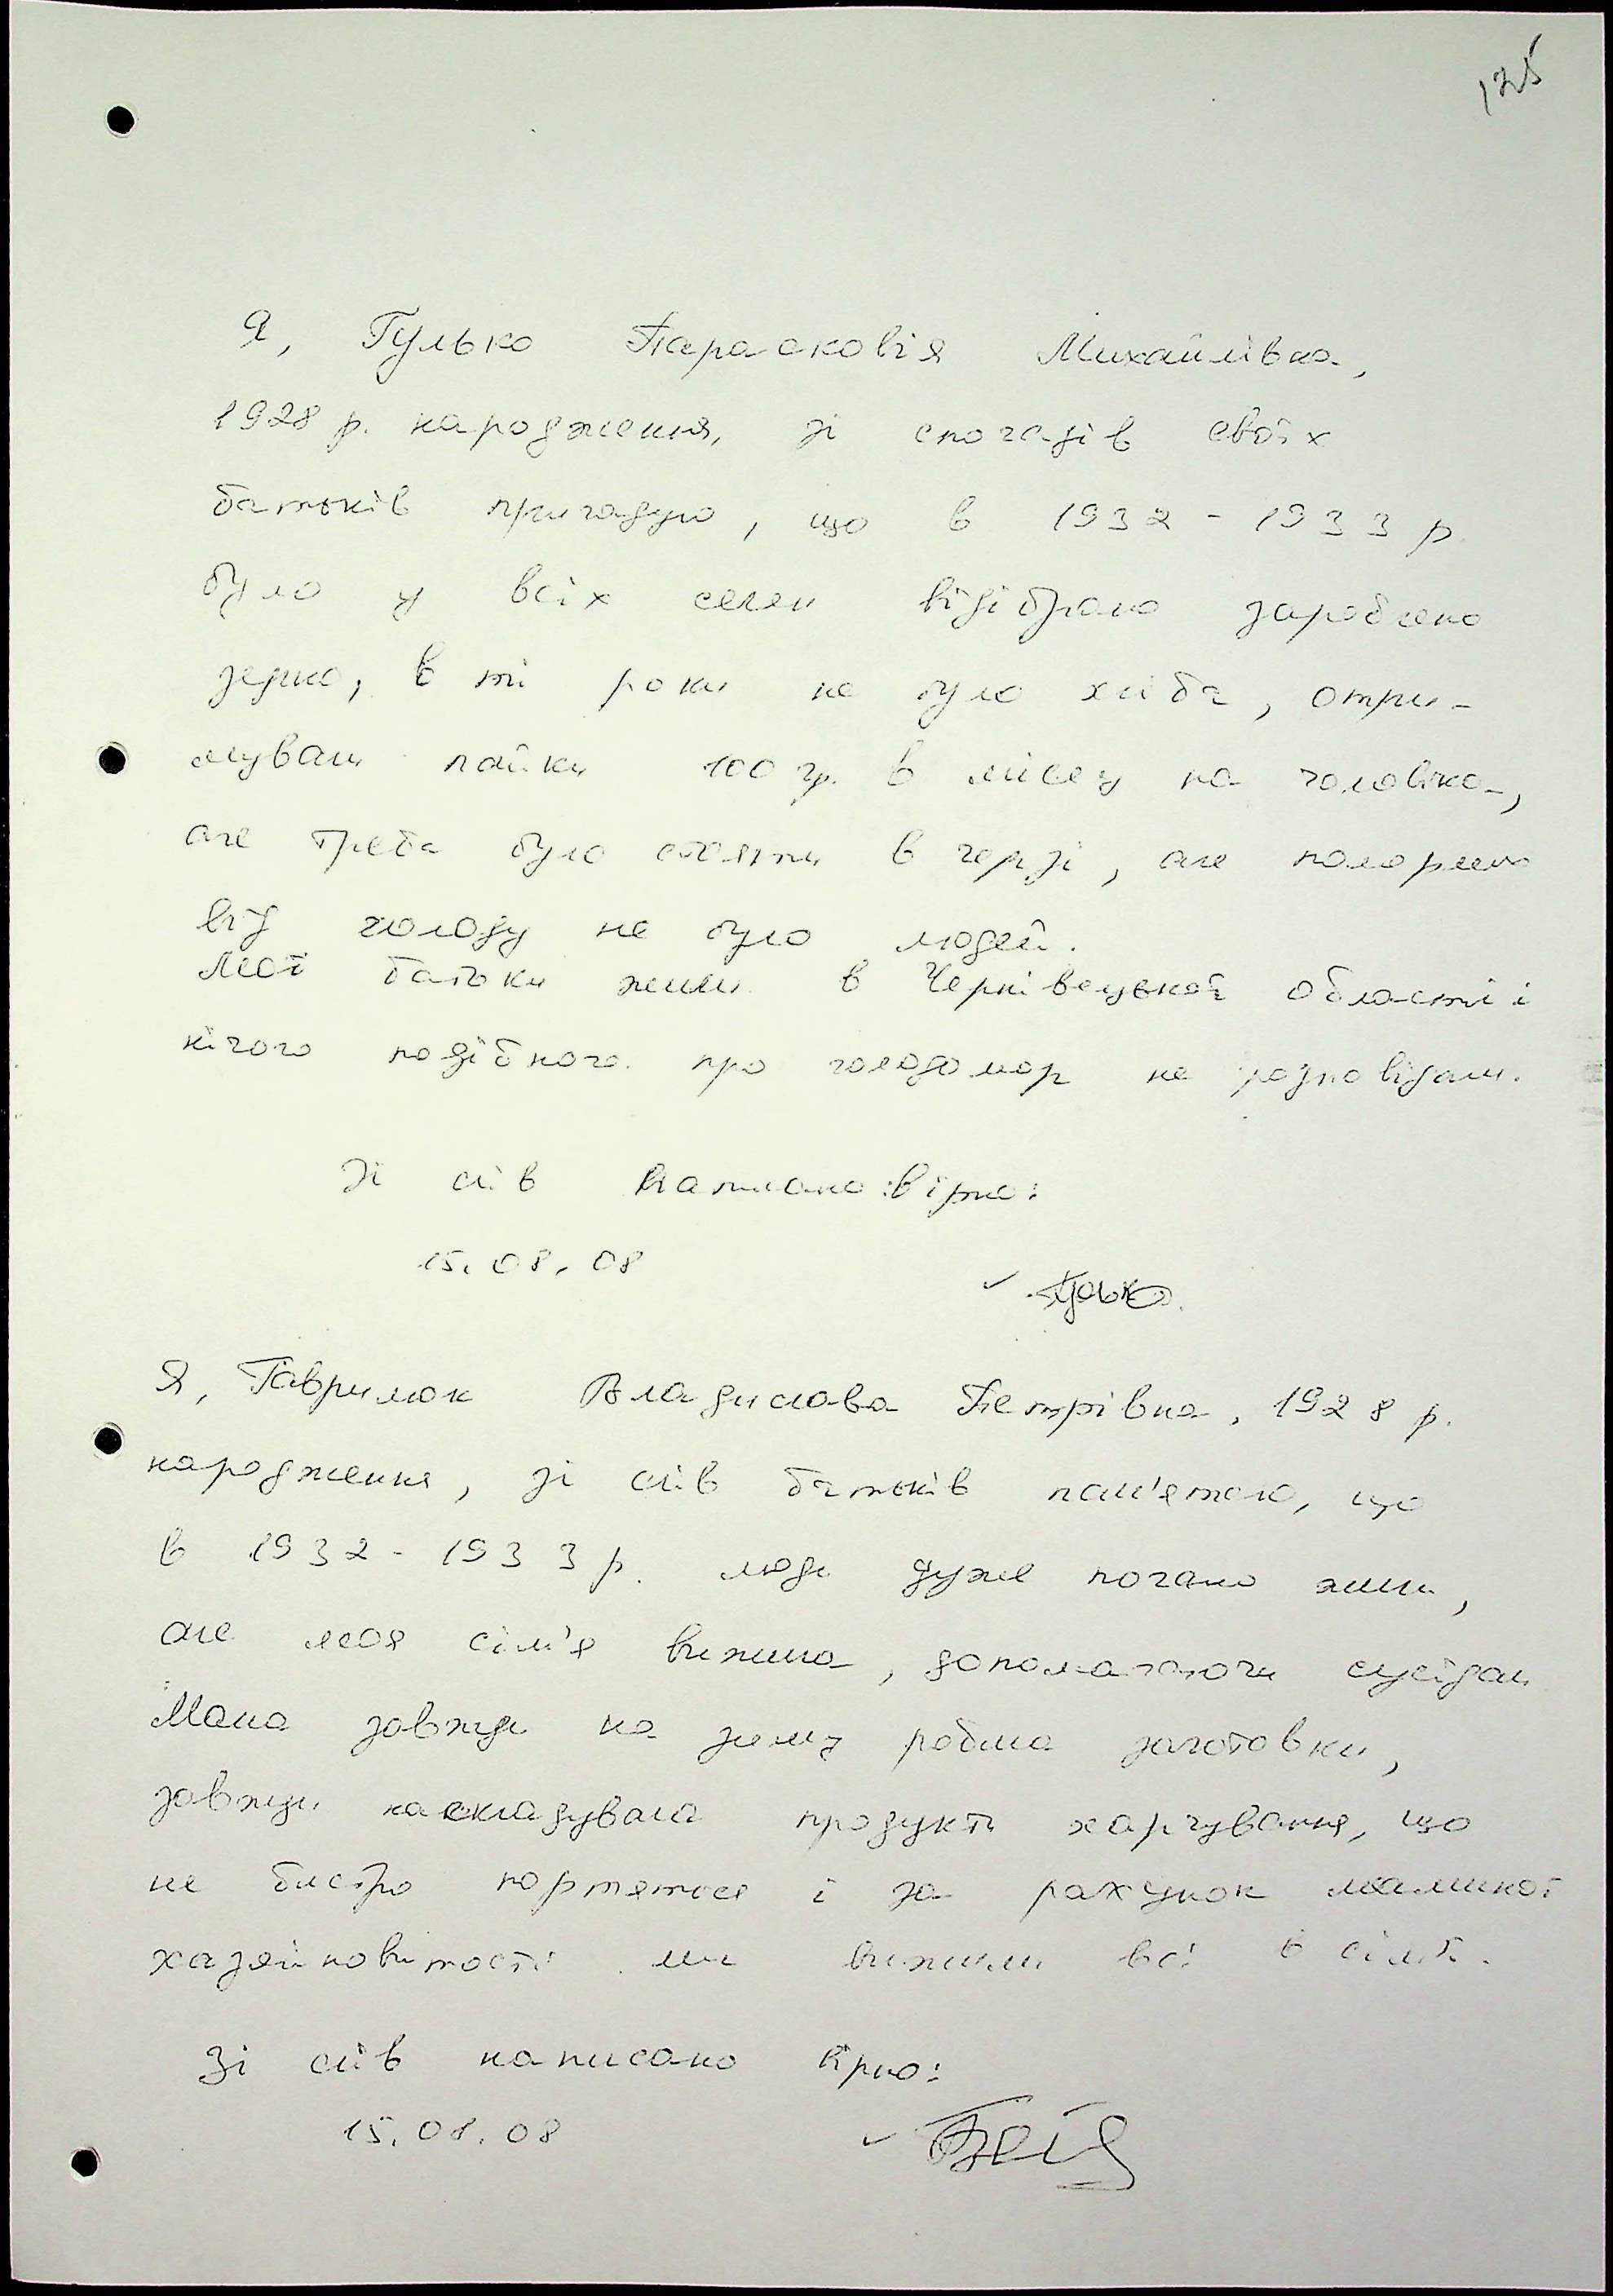 125
Я, Гулько Парасковія Михайлівна,
1928 р. народження, зі спогадів своїх
батьків пригадую, що в 1932 - 1933 р.
було у всіх селян відібрано зароблено
зерно, в ті роки не було хліба, отри-
мували пайки 100 гр. в місяц на чоловіка,
але треба було стояти в черзі, але померших
від голоду не було людей.
Мої батьки жили в Чернівецької області і
нічого подібного про голодомор не розповідали.
Зі слів написано вірно:
15.08.08
Гулько
Я, Гаврилюк Владислава Петрівна, 1928 р.
народження, зі слів батьків пам'ятаю, що
в 1932 - 1933 р. люди дуже погано жили,
але моя сім'я вижила, допомагаючи сусідам
Мама завжди на зиму робила заготовки,
завжди наскладувала продукти харчування, що
не бистро портяться і за рахунок маминої
хазяйновитості ми вижили всі в сім'ї.
Зі слів написано вірно:
15.08.08